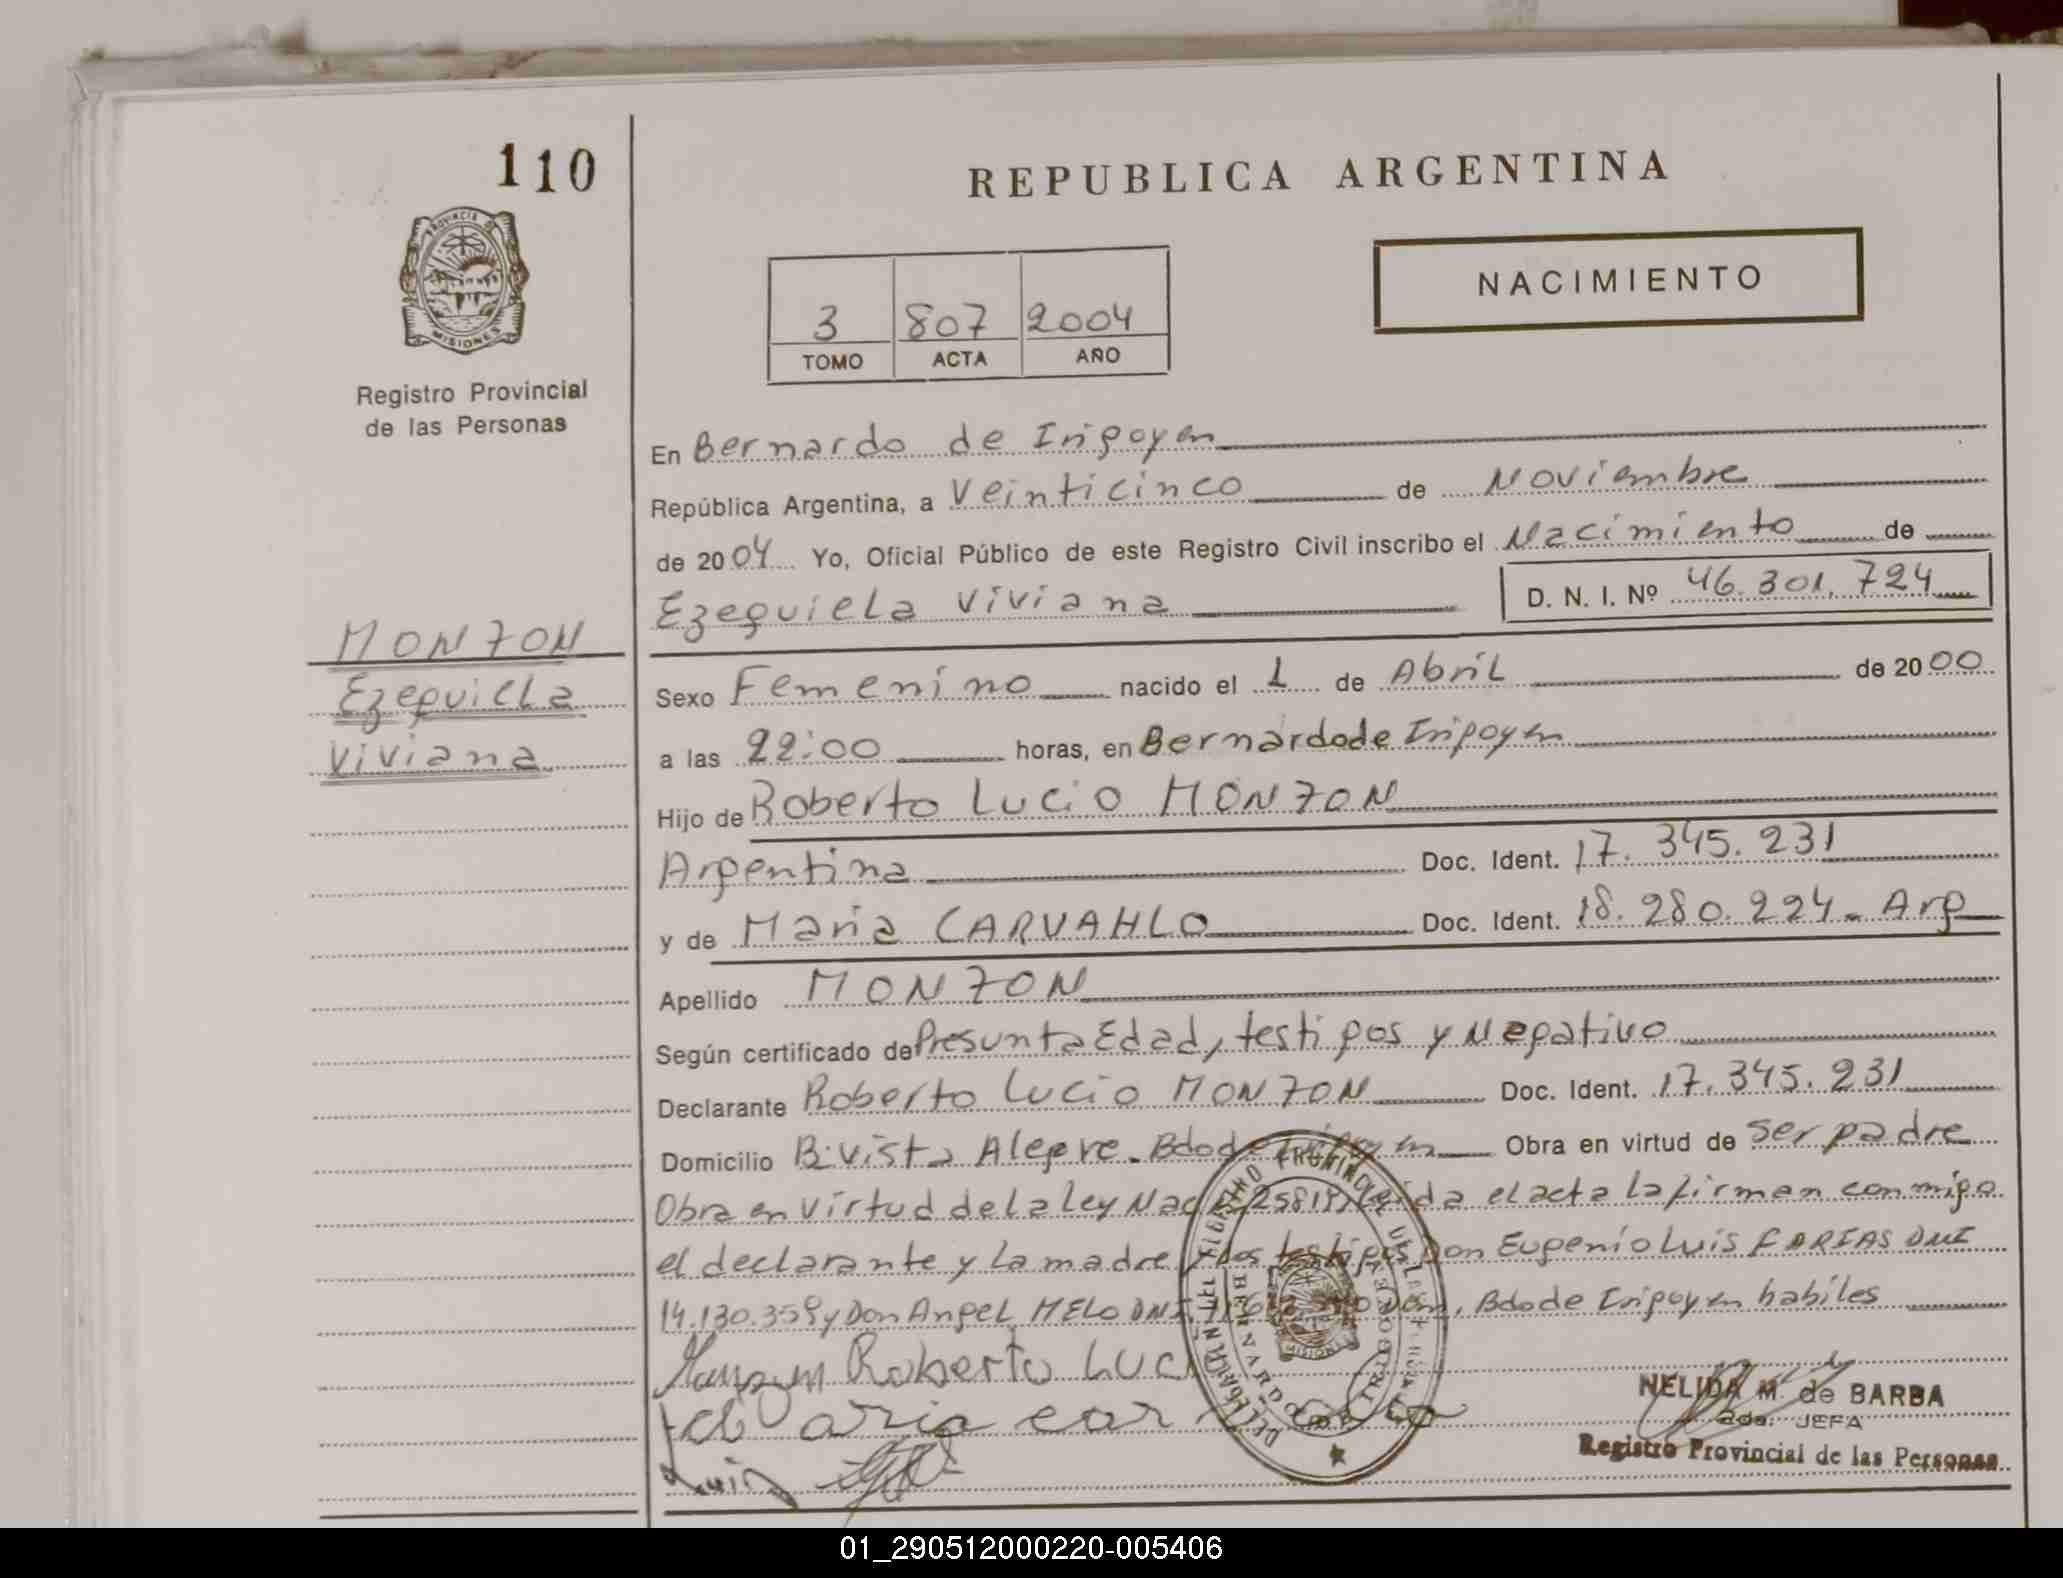 110
REPUBLICA ARGENTINA
PROVINCIA DE
MISIONES
NACIMIENTO
3 807 2004
TOMO ACTA AÑO
Registro Provincial
de las Personas
En Bernardo de Irigoyen
República Argentina, a Veinticinco de Noviembre
de 2004 Yo, Oficial Público de este Registro Civil inscribo el Nacimiento de
Ezequiela Viviana D. N. I. Nº 46.301.724
MONZON
Ezequiela
Viviana
Sexo Femenino nacido el 1 de Abril de 2000
a las 22:00 horas, en Bernardo de Irigoyen
Hijo de Roberto Lucio MONZON
Argentina Doc. Ident. 17.345.231
y de Maria CARVAHLO Doc. Ident. 18.280.224. Arg
Apellido MONZON
Según certificado de Presunta Edad, testigos y Negativo
Declarante Roberto Lucio MONZON Doc. Ident. 17.345.231
Domicilio B: Vista Alegre. Bdo de Irigoyen Obra en virtud de ser padre
Obra en virtud de la ley Nac 25819, leida el acta la firman conmigo
el declarante y la madre y los testigos Don Eugenio Luis FARIAS DNI
14.130.359 y Don Angel MELO DNI Dom, Bdo de Irigoyen habiles
Roberto Luci
NELIDA M. de BARBA
2da. JEFA
Registro Provincial de las Personas
01_290512000220-005406